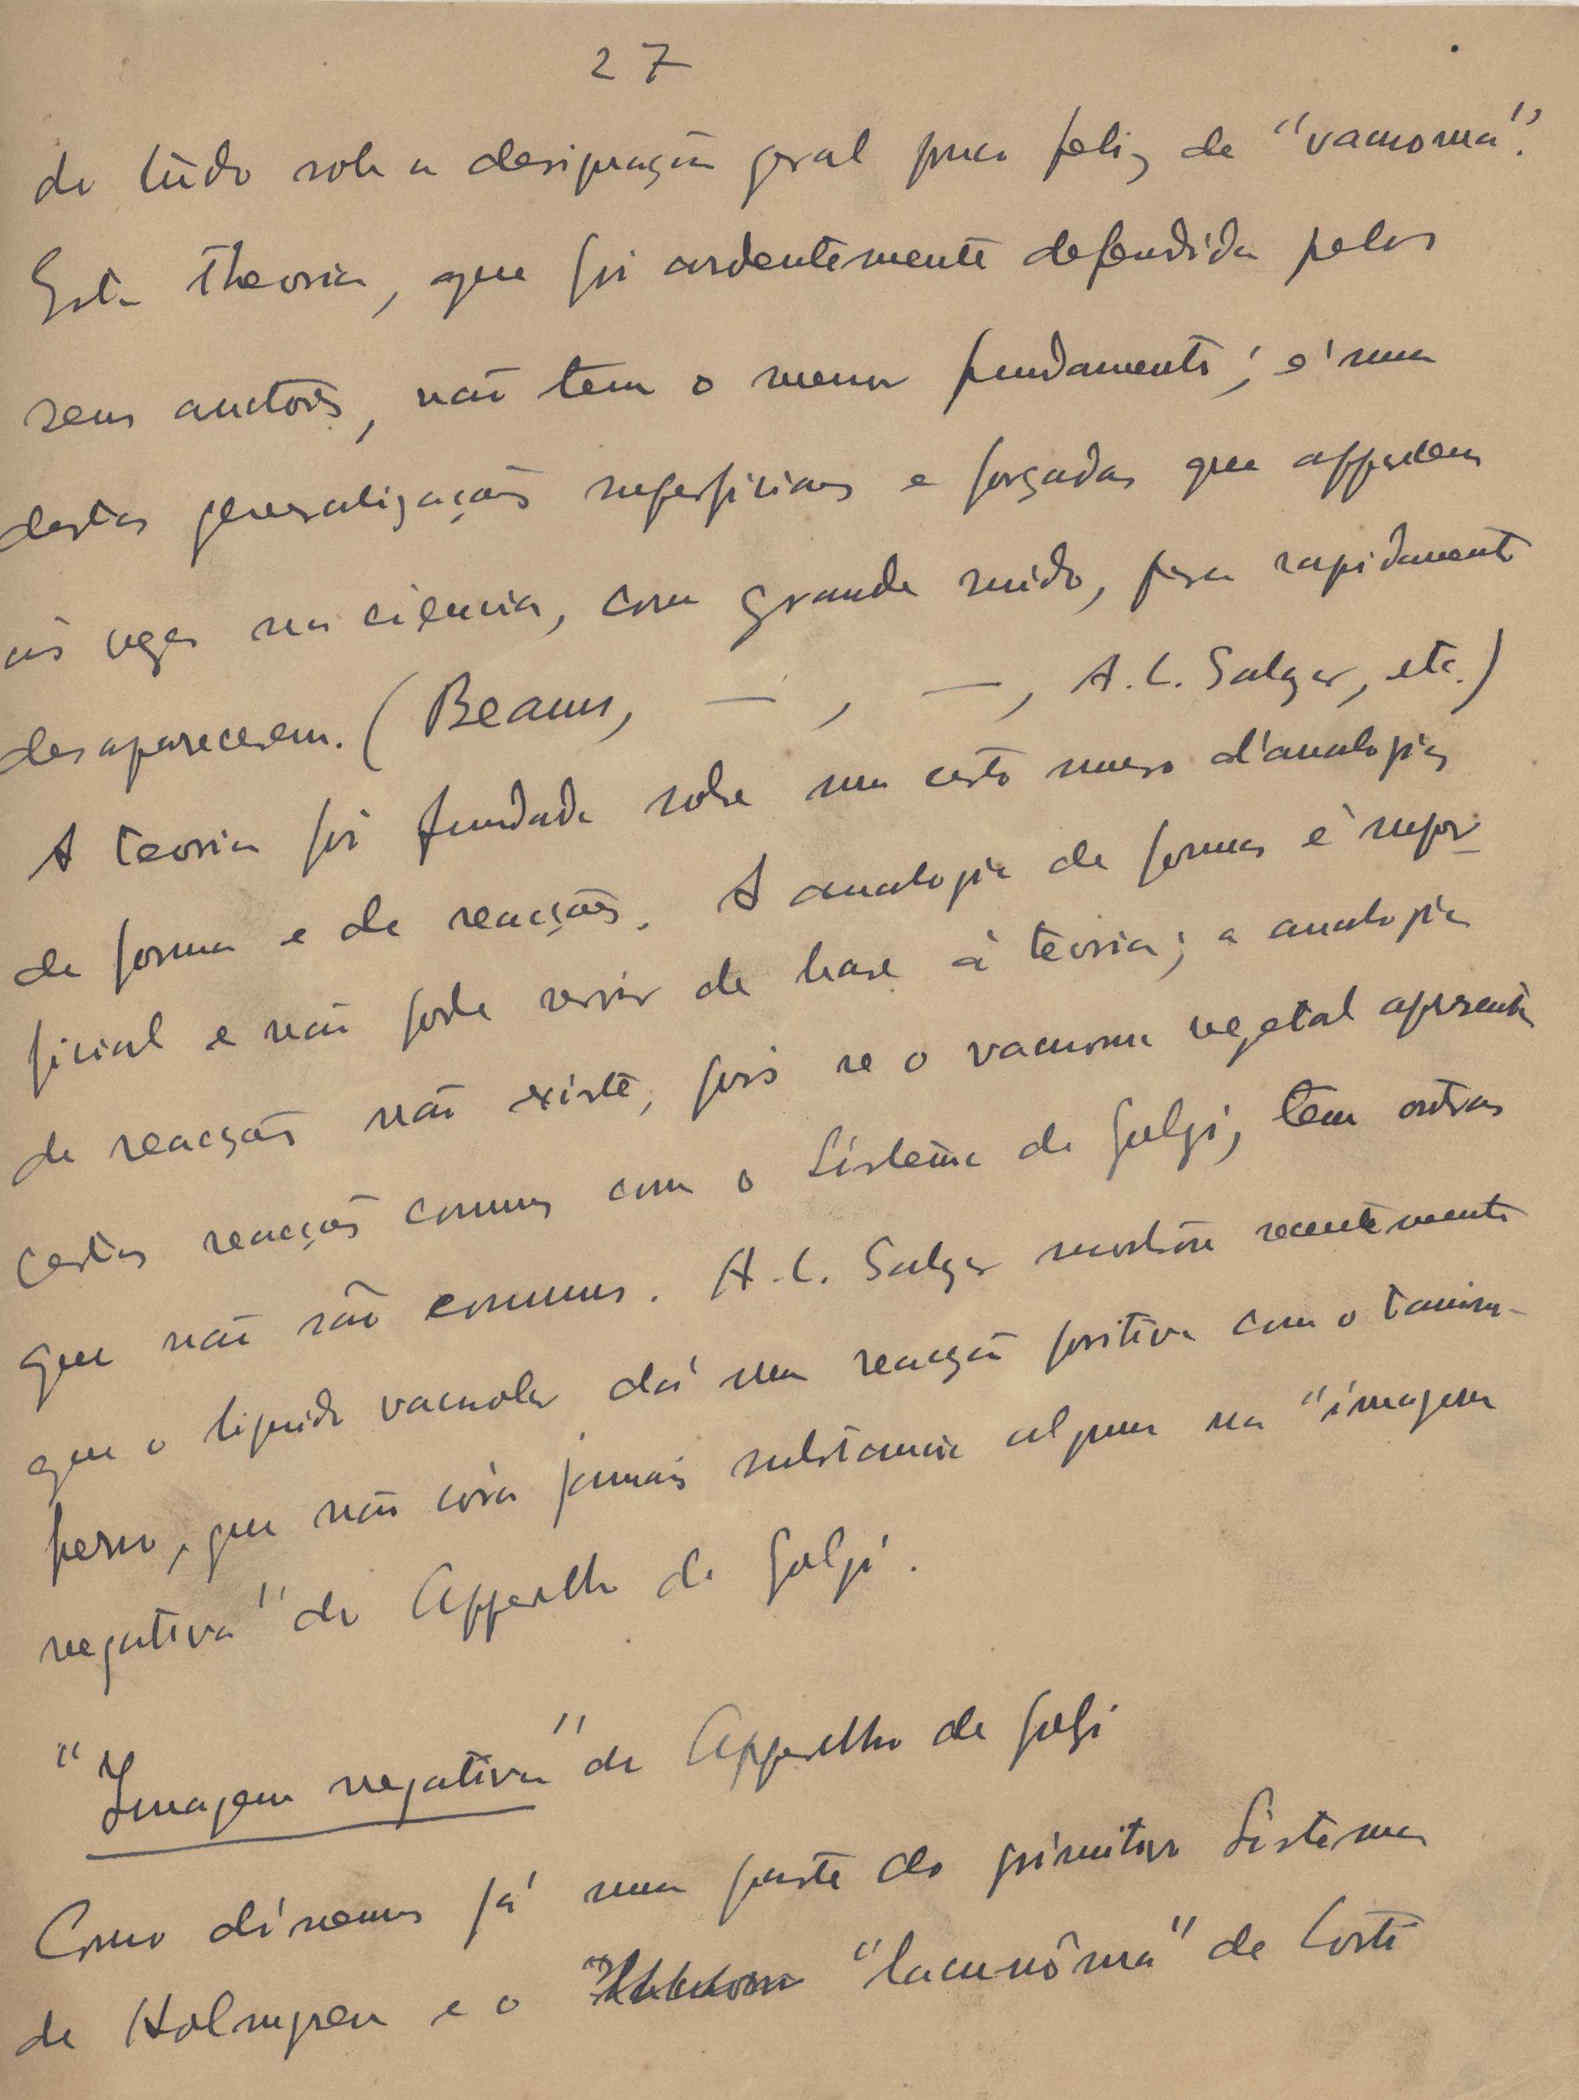 27
do tudo sob a designação geral pouco feliz de "vacuoma".
Esta theoria, que foi ardentemente defendida pelos
seus auctores, não tem o menor fundamento; é uma
destas generalizações superficiaes e forçadas que apparecem
ás vezes na ciencia, com grande ruido, para rapidamente
desaparecerem. (Beams, — , — , A. L. Salazar, etc.)
A teoria foi fundada sobre um certo numero d'analogias
de forma e de reacções. A analogia de formas é super-
ficial e não pode servir de base á teoria; a analogia
de reacções não existe, pois se o vacuoma vegetal apresenta
certas reacções comuns com o Sistema de Golgi, tem outras
que não são communs. A. L. Salazar mostrou recentemente
que o liquido vacuolar dá uma reacção positiva com o tanino-
ferro, que não córa jamais substancia alguma na "imagem
negativa" do Apparelho de Golgi.
"Imagem negativa" do Apparelho de Golgi
Como dissemos já uma parte do primitivo Sistema
de Holmgren e o "lacunôma" de Corti